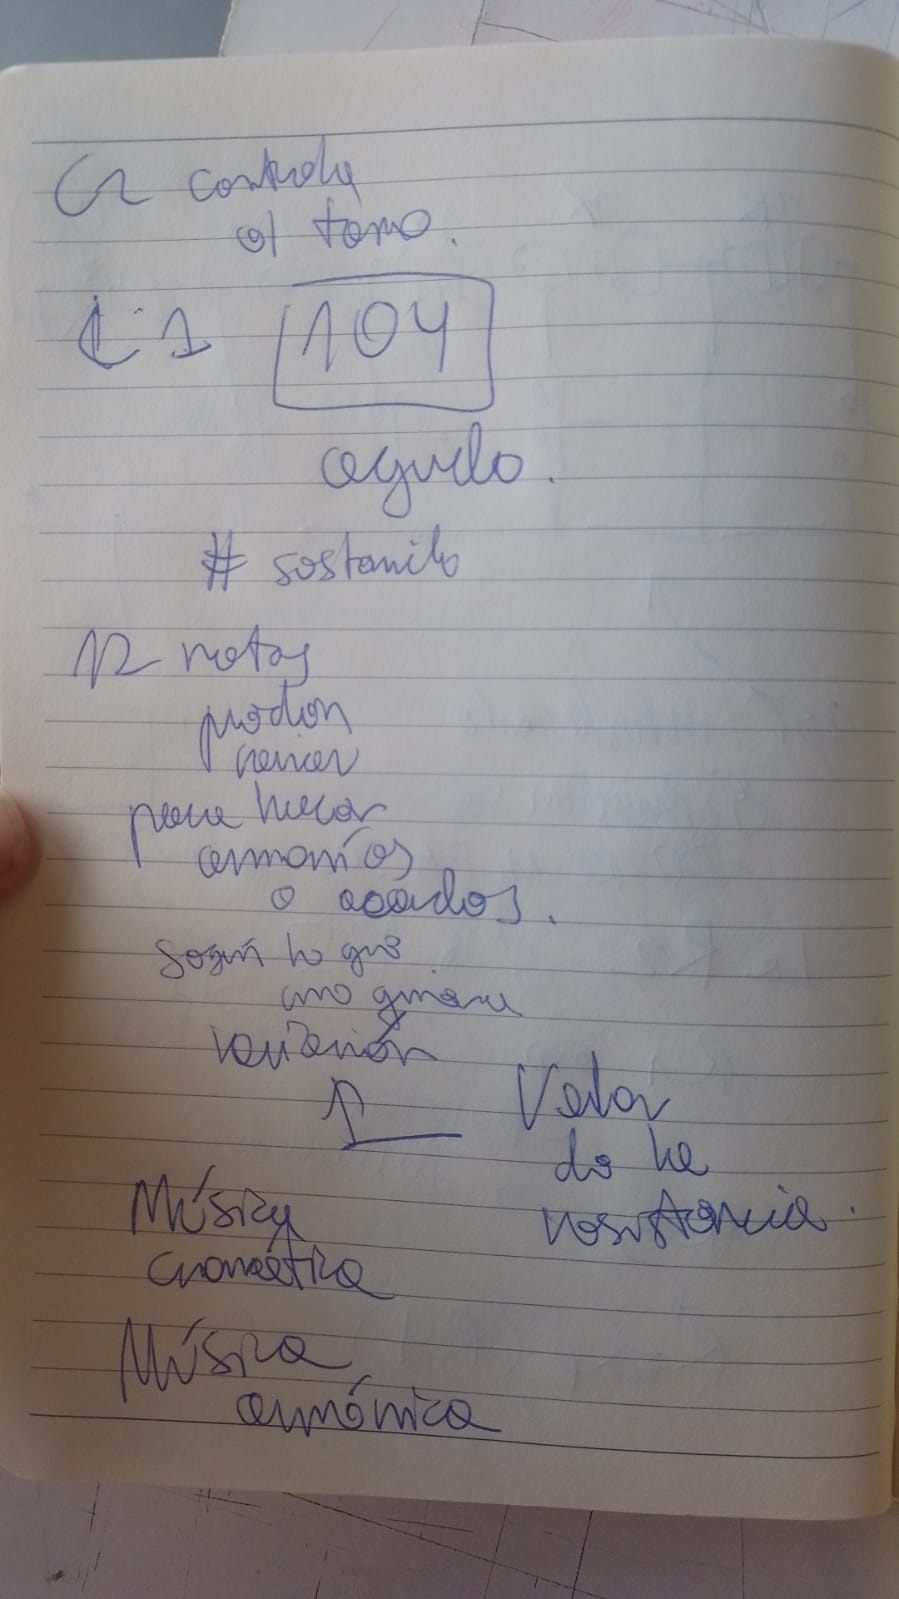 C2 controla
el tono.
C1 104
agudo.
# sostenido
12 notas
pueden
variar
para hacer
armonías
o acordes.
según lo que
uno quiera
variación
Valor
de la
resistencia.
Música
cromática
Música
armónica